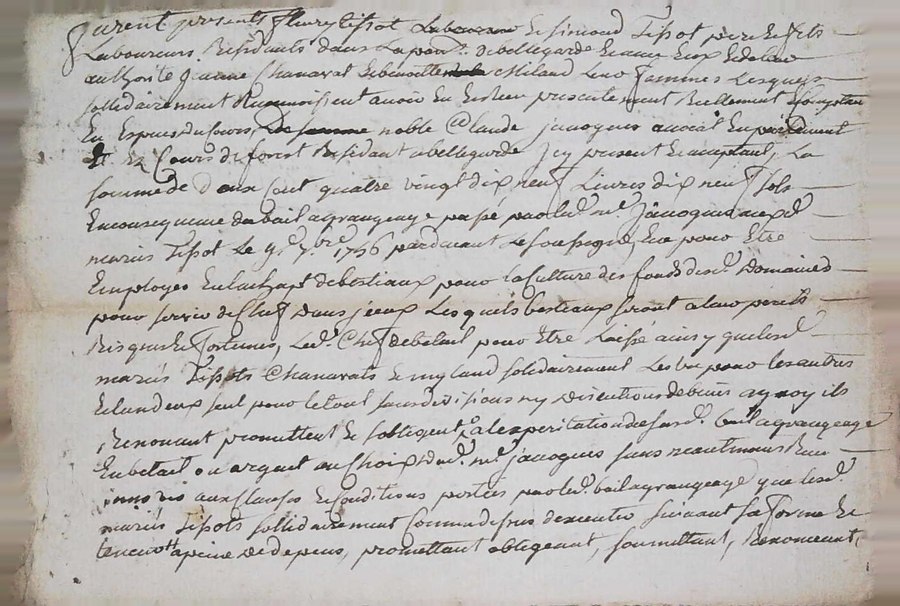 furent presents fleury tissot Laboureur et simond Tissot pere et fils
Laboureurs Residants dans La parr.e de bellegarde et avec Eux et de leur
authorité jeanne Chanavat et benoitte Miland leurs femmes Lesquels
sollidairement Reconnoissent avoir Eu et Receu presentement Reellement Et comptan
En Espèces du cours, de noble Claude jacoques avocat En parlement
Et Es Cours de forest Residant a bellegarde Icy present Et acceptant, La
somme de deux cent quatre vingt dix neuf Livres dix neuf sols
En consequence du bail a grangeage passé par led. me. Jacoques auxd.
mariés Tissot Le 9e. 7.bre 1756 pardevant Le soussigné, Eue pour Etre
Employée En lachapt de bestiaux pour la Culture des fonds desd. Domaines
pour servir de Chef dans jceux Lesquels bestiaux seront a leur perils
Risques et fortunes, Led. Chef de betail pour Etre Laissé ainsy que lesd.
mariés Tissots Chanavats et myland sollidairement Les un pour les autres
Et lun deux seul pour le tout sans divisions ny discutions de biens a quoy ils
Renoncent promettent et sobligent a lexpiration dud. bail a grangeage
En betail ou argent au Choix dud. me. jacoques sans neantmoins
aux Clauses et Conditions portées par led. bail a grangeage que lesd.
mariés Tissots sollidairement dexecuter suivant sa forme et
teneur a peine de depens, promettant obligeant, soumettant, Renonceant,